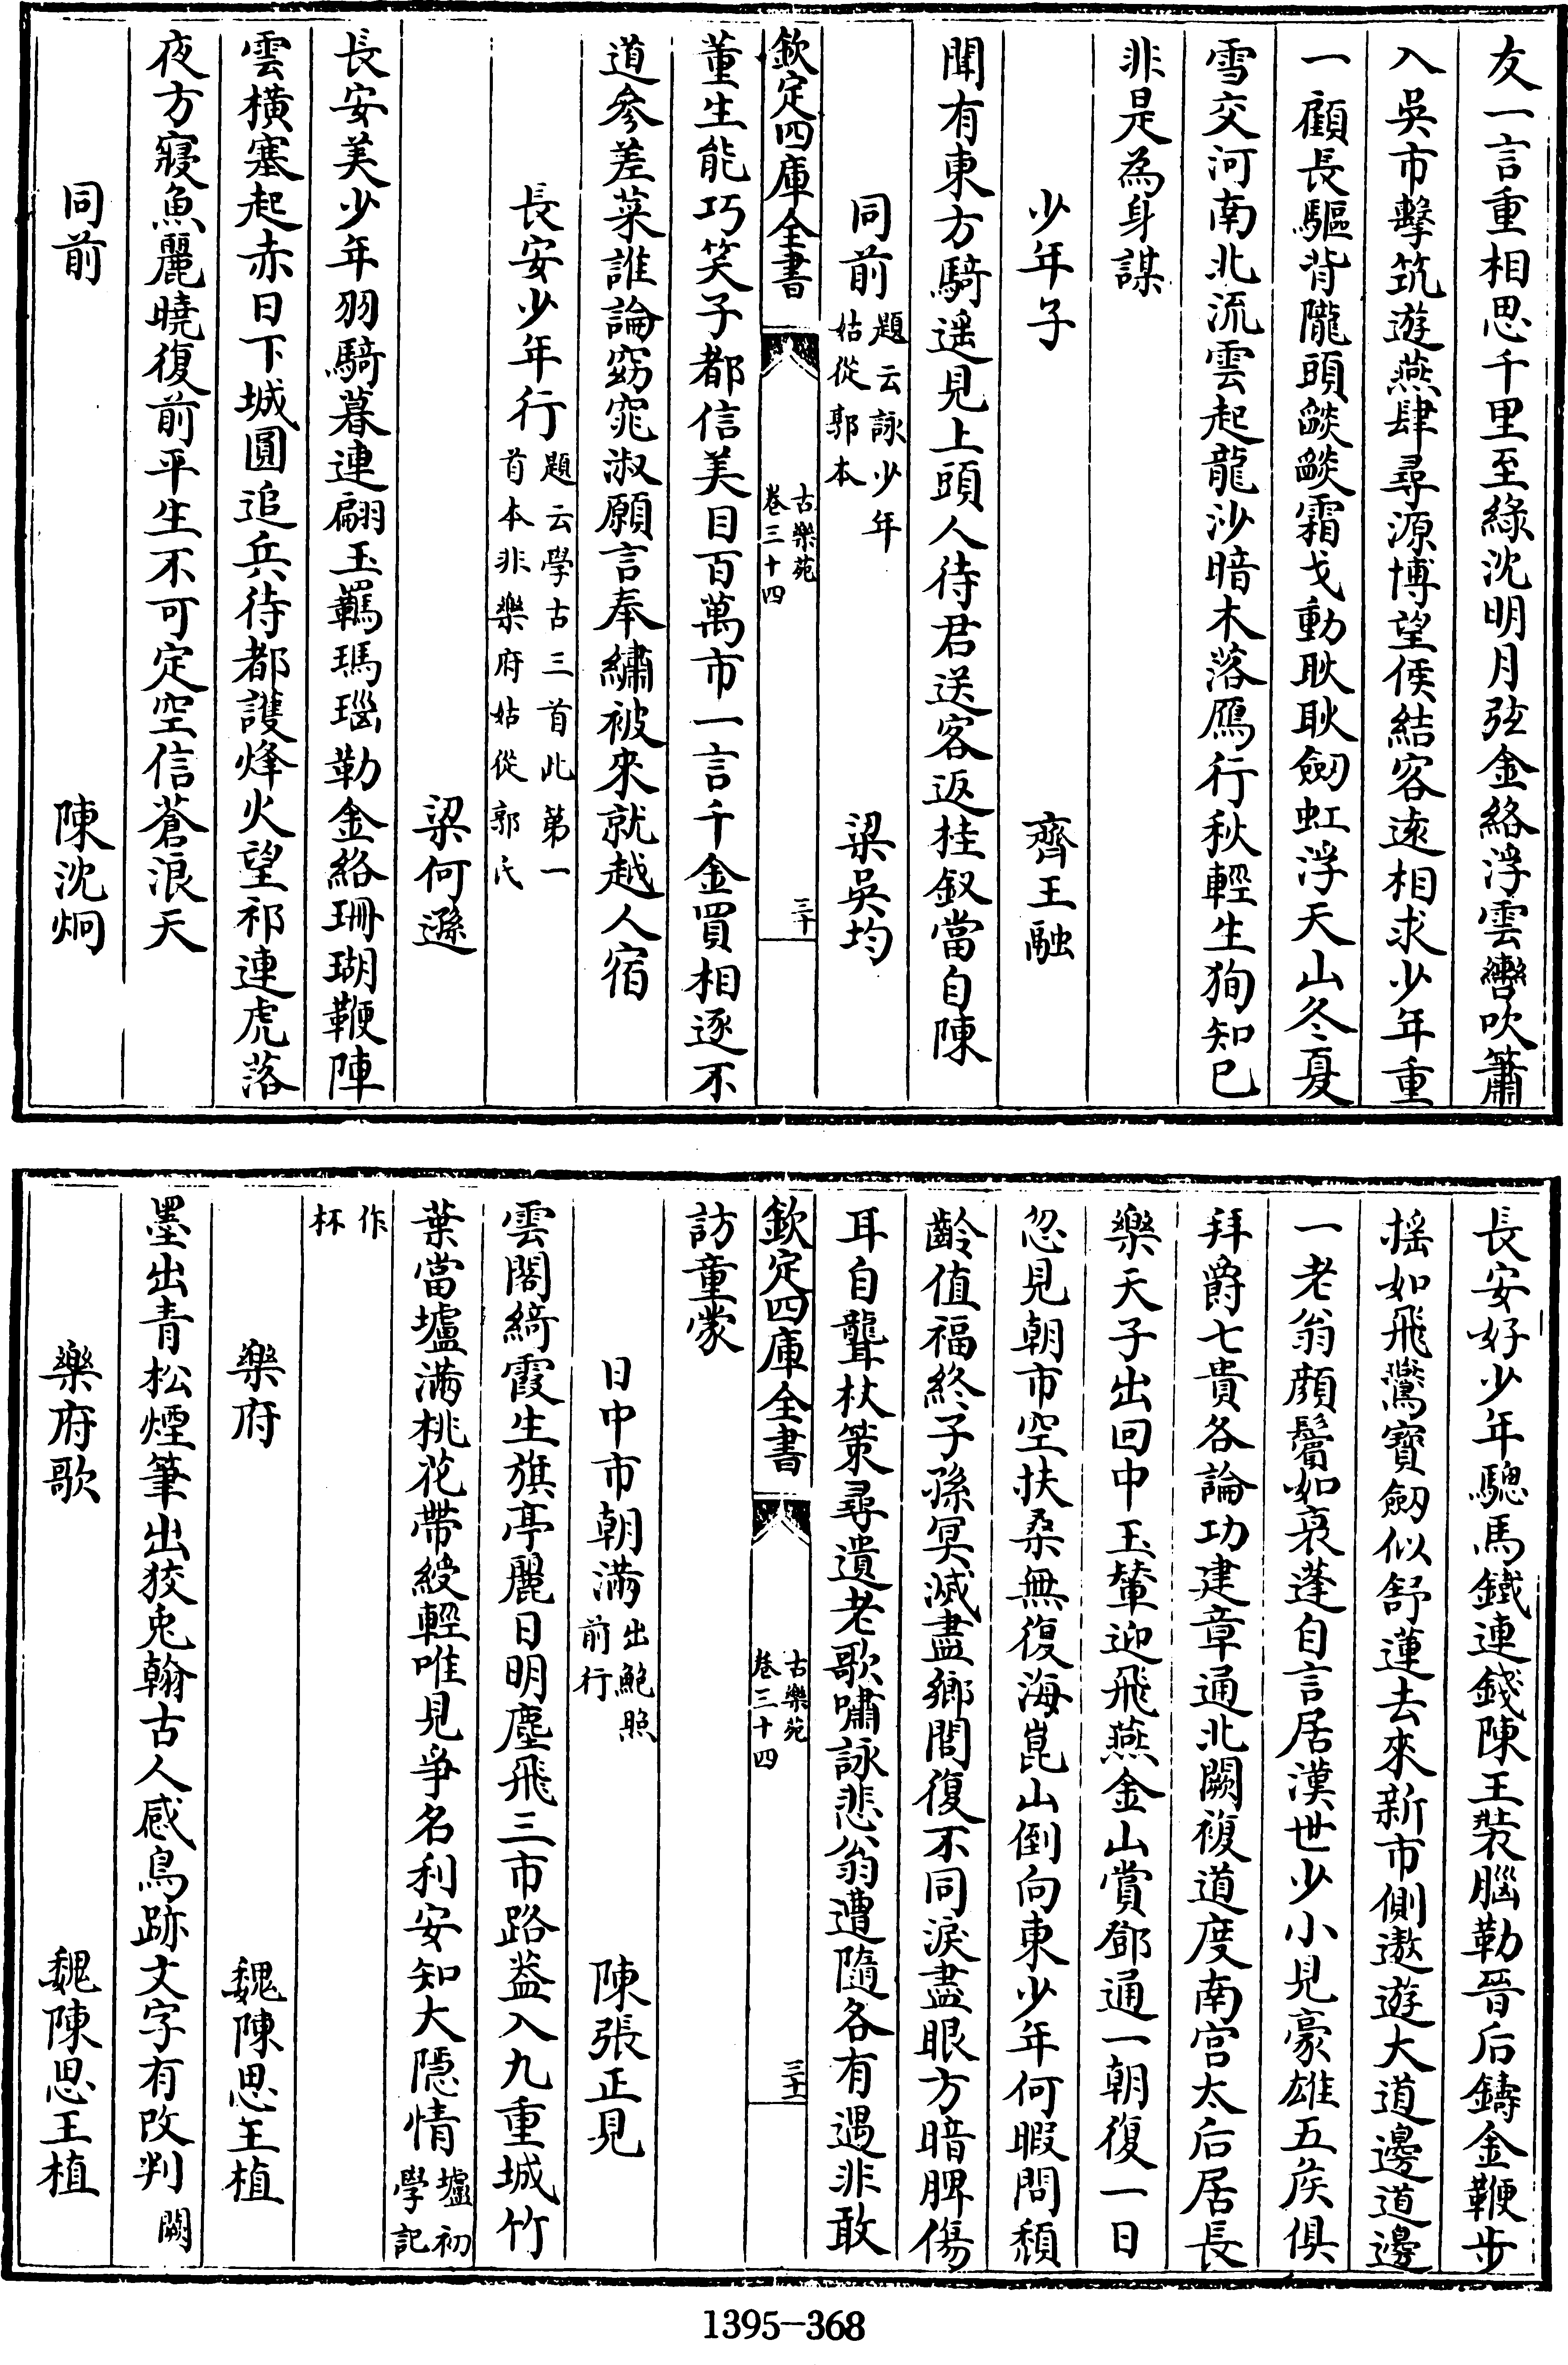 友一言重相思千里至綠沈明月弦金絡浮雲轡吹簫
入吳市擊筑遊燕肆尋源博望侯結客遠相求少年重
一顧長驅背隴頭燄燄霜戈動耿耿劒虹浮天山冬夏
雪交河南北流雲起龍沙暗木落鴈行秋輕生狥知已
非是為身謀
少年子　齊王融
聞有東方騎遥見上頭人待君送客返桂釵當自陳
同前題云詠少年姑從郭本　梁吳均
欽定四庫全書　古樂苑卷三十四　三十
董生能巧笑子都信美目百萬市一言千金買相逐不
道參差菜誰論窈窕淑願言奉繡被來就越人宿
長安少年行題云學古三首此第一首本非樂府姑從郭氏
梁何遜
長安美少年羽騎暮連翩玉羈瑪瑙勒金絡珊瑚鞭陣
雲橫塞起赤日下城圓追兵待都護烽火望祁連虎落
夜方寢魚麗曉復前平生不可定空信蒼浪天
同前　陳沈炯
長安好少年驄馬鐵連錢陳王裝腦勒晉后鑄金鞭步
搖如飛鷰寶劒似舒蓮去來新市側遨遊大道邊道邊
一老翁顏鬢如衰蓬自言居漢世少小見豪雄五矦俱
拜爵七貴各論功建章通北闕複道度南宫太后居長
樂天子出回中玉輦迎飛燕金山賞鄧通一朝復一日
忽見朝市空扶桑無復海崑山倒向東少年何暇問頹
齡值福終子孫冥滅盡鄉閭復不同淚盡眼方暗脾傷
耳自聾杖策尋遺老歌嘯詠悲翁遭隨各有遇非敢
欽定四庫全書　古樂苑卷三十四　三十一
訪童蒙
日中市朝滿出鮑照前行　陳張正見
雲閣綺霞生旗亭麗日明塵飛三市路蓋入九重城竹
葉當壚滿桃花帶綬輕唯見爭名利安知大隱情壚初學記
作杯
樂府　魏陳思王植
墨出青松煙筆出狡兎翰古人感鳥跡文字有改判闕
樂府歌　魏陳思王植
1395-368